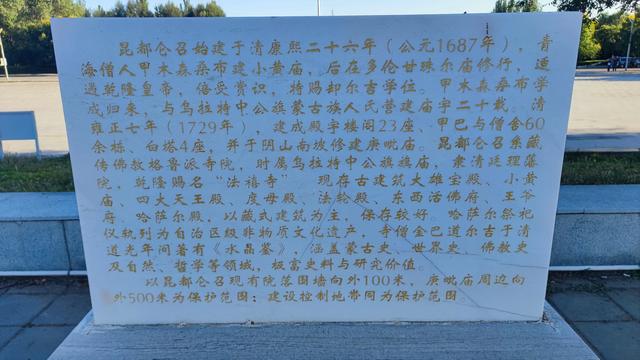 昆都仑召始建于清康熙二十六年（公元1687年），青
海僧人甲木森桑布建小黄庙，后在多伦甘珠尔庙修行，适
遇乾隆皇帝，倍受赏识，特赐却尔吉学位。甲木森桑布学
成归来，与乌拉特中公旗蒙古族人民营建庙宇二十载。清
雍正七年（1729年），建成殿宇楼阁23座、甲巴与僧舍60
余栋、白塔4座，并于阴山南坡修建庚毗庙。昆都仑召系藏
传佛教格鲁派寺院，时属乌拉特中公旗旗庙，隶清廷理藩
院，乾隆赐名“法禧寺”　现存古建筑大雄宝殿、小黄
庙、四大天王殿、度母殿、法轮殿、东西活佛府、王爷
府、哈萨尔殿，以藏式建筑为主，保存较好。哈萨尔祭祀
仪轨列为自治区级非物质文化遗产，寺僧金巴道尔吉于清
道光年间著有《水晶鉴》，涵盖蒙古史、世界史、佛教史
及自然、哲学等领域，极富史料与研究价值。
以昆都仑召现有院落围墙向外100米，庚毗庙周边向
外500米为保护范围；建设控制地带同为保护范围。